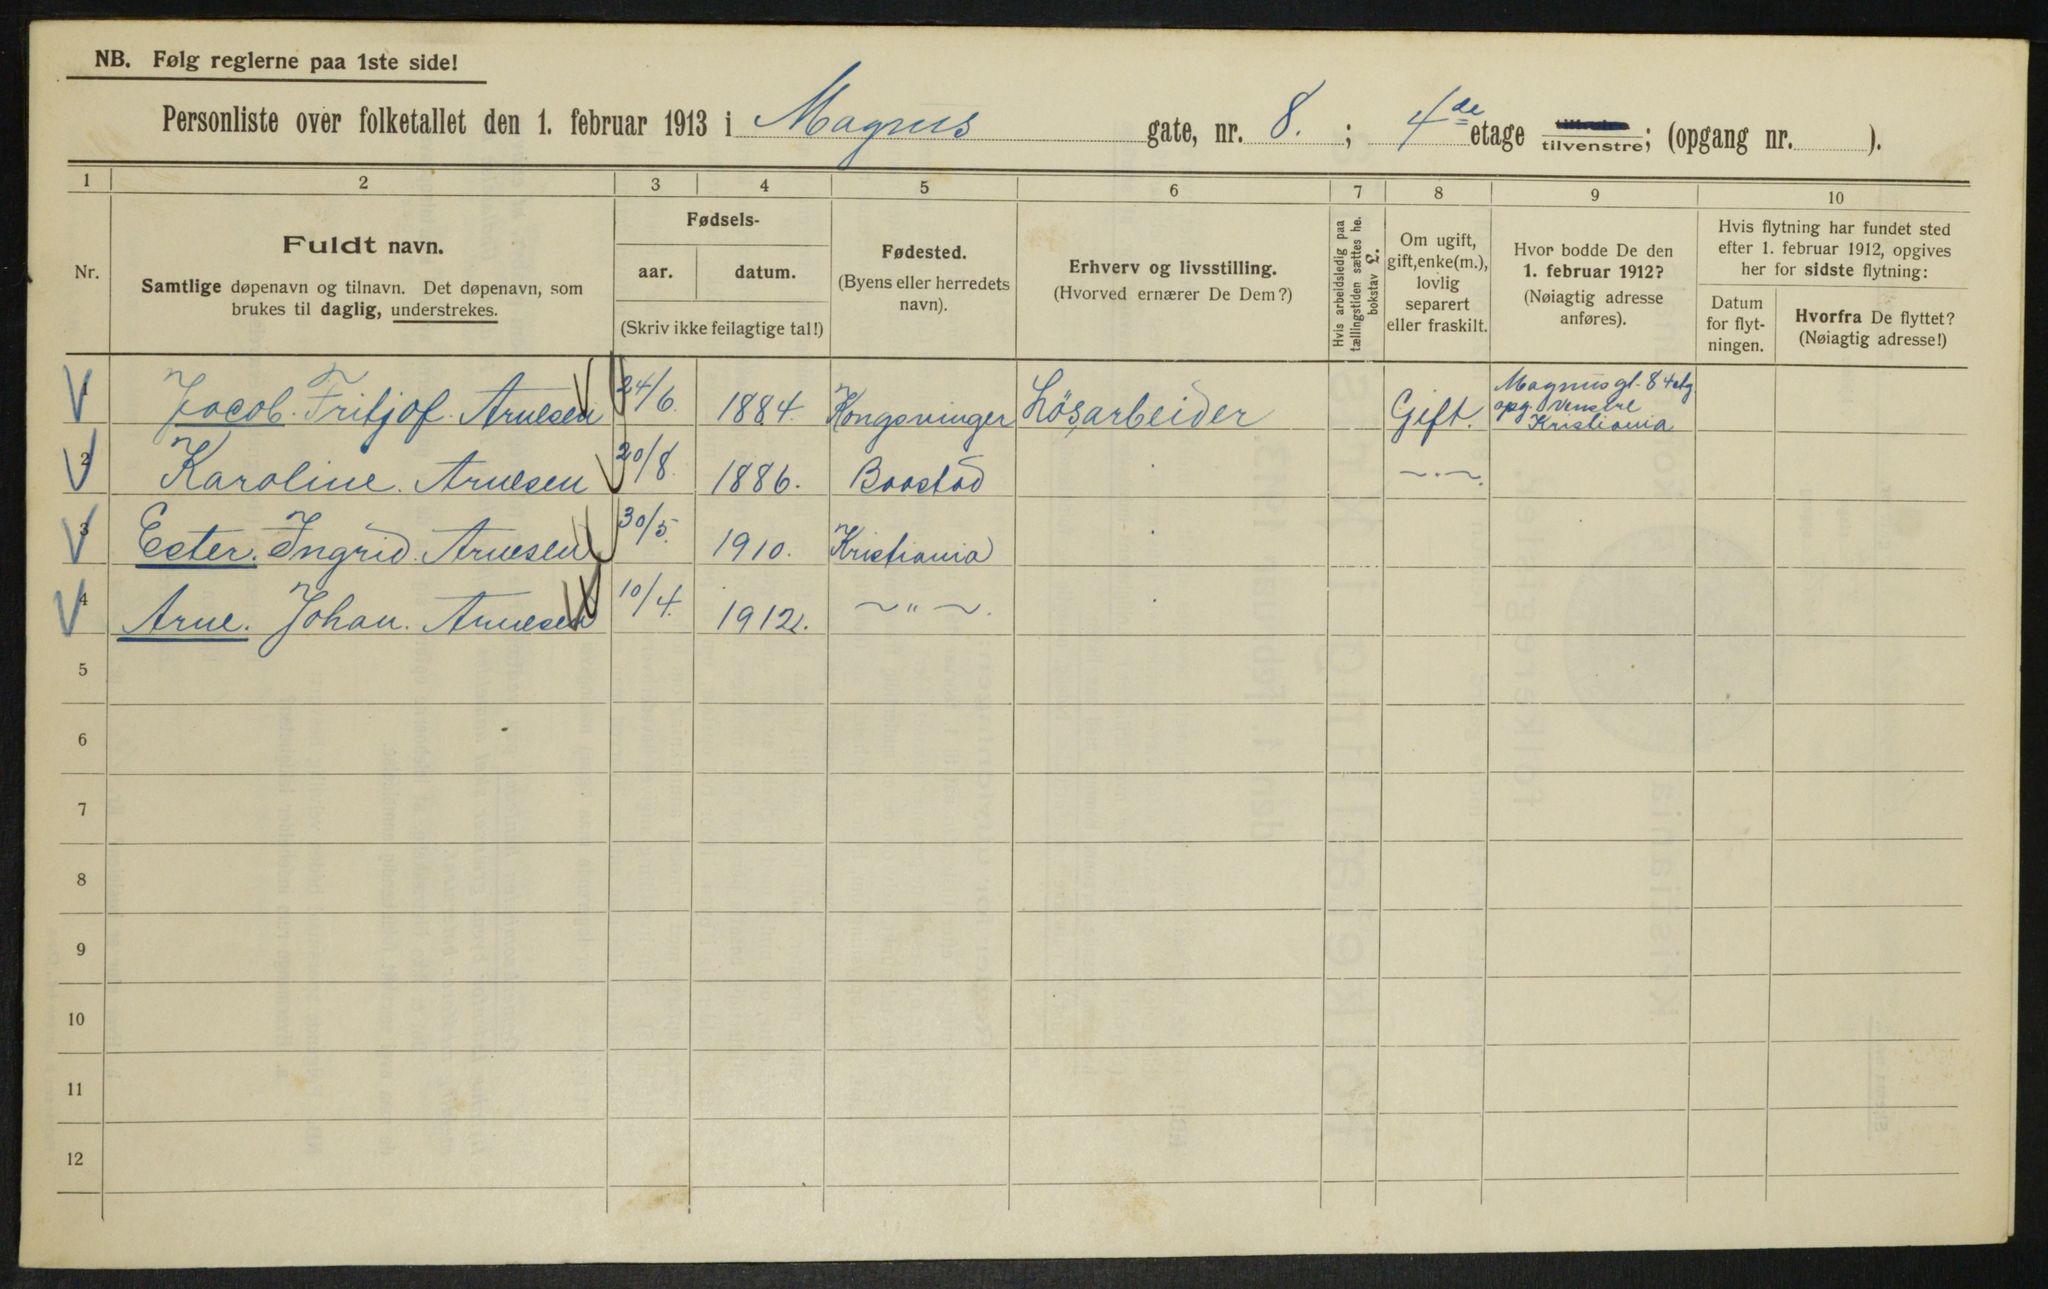 NB. Følg reglerne paa 1ste side!
Personliste over folketallet den 1. februar 1913 i Magnus gate, nr. 8. ; 4de etage tilvenstre; (opgang nr. ).
1 2 3 4 5 6 7 8 9 10
Nr.
Fuldt navn.
Samtlige døpenavn og tilnavn. Det døpenavn, som
brukes til daglig, understrekes.
Fødsels-
aar. datum.
(Skriv ikke feilagtige tal!)
Fødested.
(Byens eller herredets
navn).
Erhverv og livsstilling.
(Hvorved ernærer De Dem?)
Hvis arbeidsledig paa
tællingstiden sættes he.
bokstav L.
Om ugift,
gift, enke(m.),
lovlig
separert
eller fraskilt.
Hvor bodde De den
1. februar 1912?
(Nøiagtig adresse
anføres).
Hvis flytning har fundet sted
efter 1. februar 1912, opgives
her for sidste flytning:
Datum
for flyt-
ningen.
Hvorfra De flyttet?
(Nøiagtig adresse!)
1 Jacob. Fritjof. Arnesen 24/6. 1884. Kongsvinger Løsarbeider Gift. Magnus gt. 8 4 etg.
opg. venstre
Kristiania
2 Karoline. Arnesen 20/8. 1886. Baastad ~·~.
3 Ester. Ingrid. Arnesen 30/5. 1910. Kristiania
4 Arne. Johan. Arnesen 10/4. 1912. ~„~.
5
6
7
8
9
10
11
12